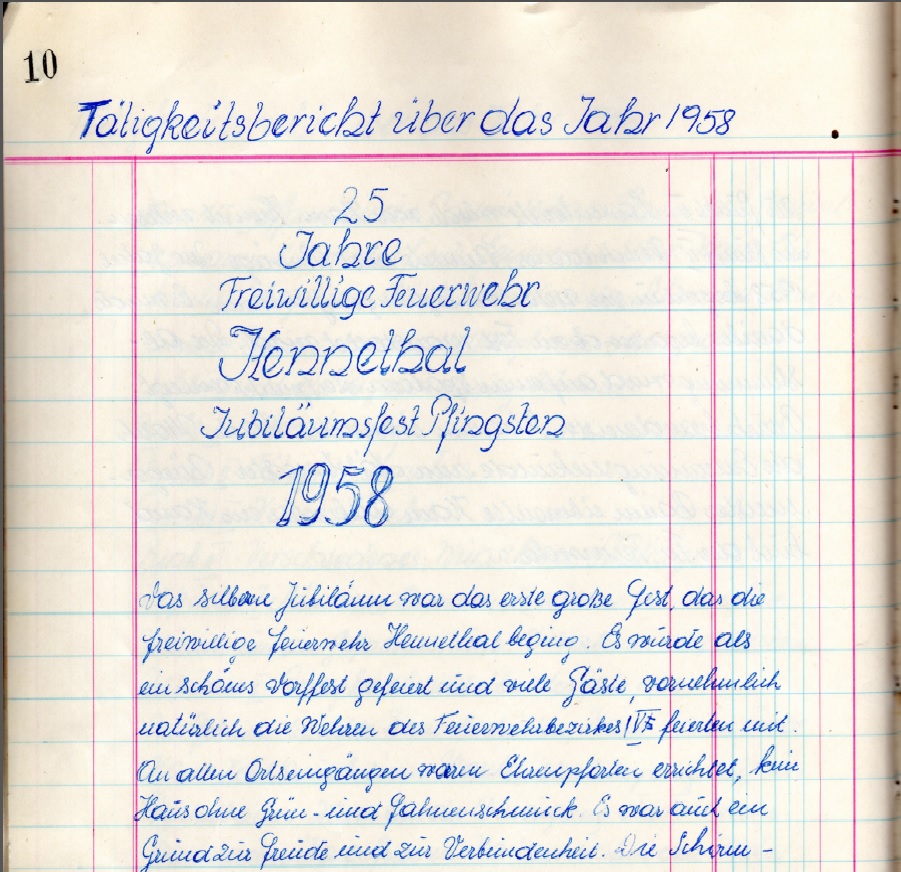 10
Tätigkeitsbericht über das Jahr 1958
25
Jahre
Freiwillige Feuerwehr
Hennethal
Jubiläumsfest Pfingsten
1958
Das silberne Jubiläum war das erste große Fest, das die
freiwillige Feuerwehr Hennethal beging. Es wurde als
ein schönes Dorffest gefeiert und viele Gäste, vornehmlich
natürlich die Wehren des Feuerwehrbezirkes feierten mit.
An allen Ortseingängen waren Ehrenpforten errichtet, kein
Haus ohne Grün- und Fahnenschmuck. Es war auch ein
Grund zur Freude und zur Verbundenheit. Die Schirm-